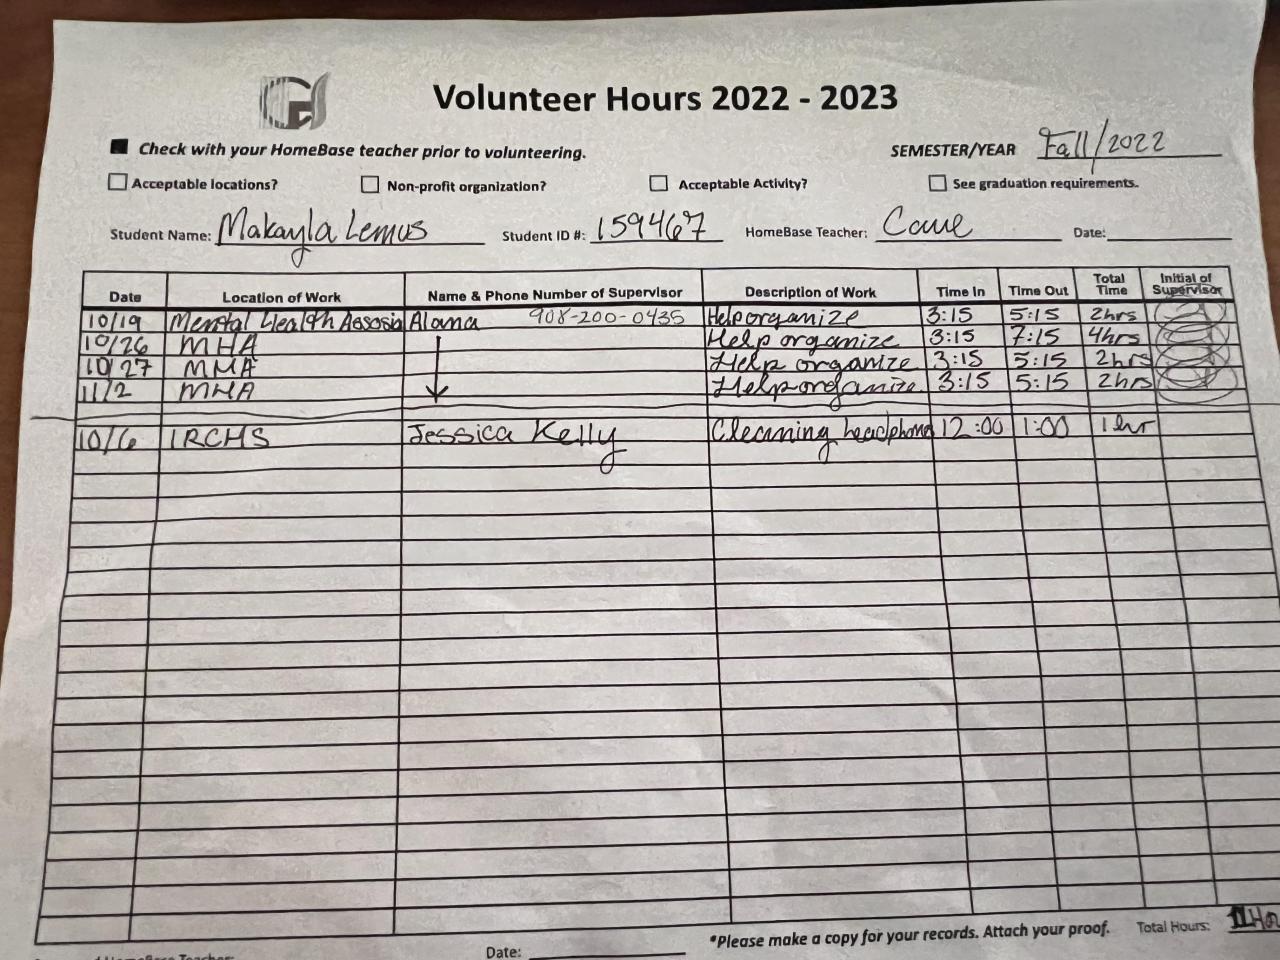 Volunteer Hours 2022 - 2023
Check with your HomeBase teacher prior to volunteering. SEMESTER/YEAR Fall/2022
Acceptable locations? Non-profit organization? Acceptable Activity? See graduation requirements.
Student Name: Makayla Lemus Student ID #: 159467 HomeBase Teacher: Date:
Date Location of Work Name & Phone Number of Supervisor Description of Work Time In Time Out Total Time Initial of Supervisor
10/19 Mental Health Assosia Alana 908-200-0435 Help organize 3:15 5:15 2hrs
10/26 MHA Help organize 3:15 7:15 4hrs
10/27 MHA Help organize 3:15 5:15 2hrs
11/2 MHA Help organize 3:15 5:15 2hrs
10/6 IRCHS Jessica Kelly Cleaning headphones 12:00 1:00 1 hr
Date: *Please make a copy for your records. Attach your proof. Total Hours: